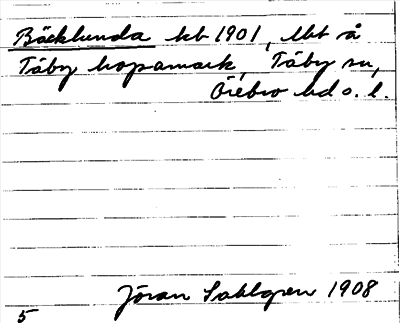 Bäcklunda kb 1901, lht å
Täby hopamark, Täby sn,
Örebro hd o. l.
Jöran Sahlgren 1908
5